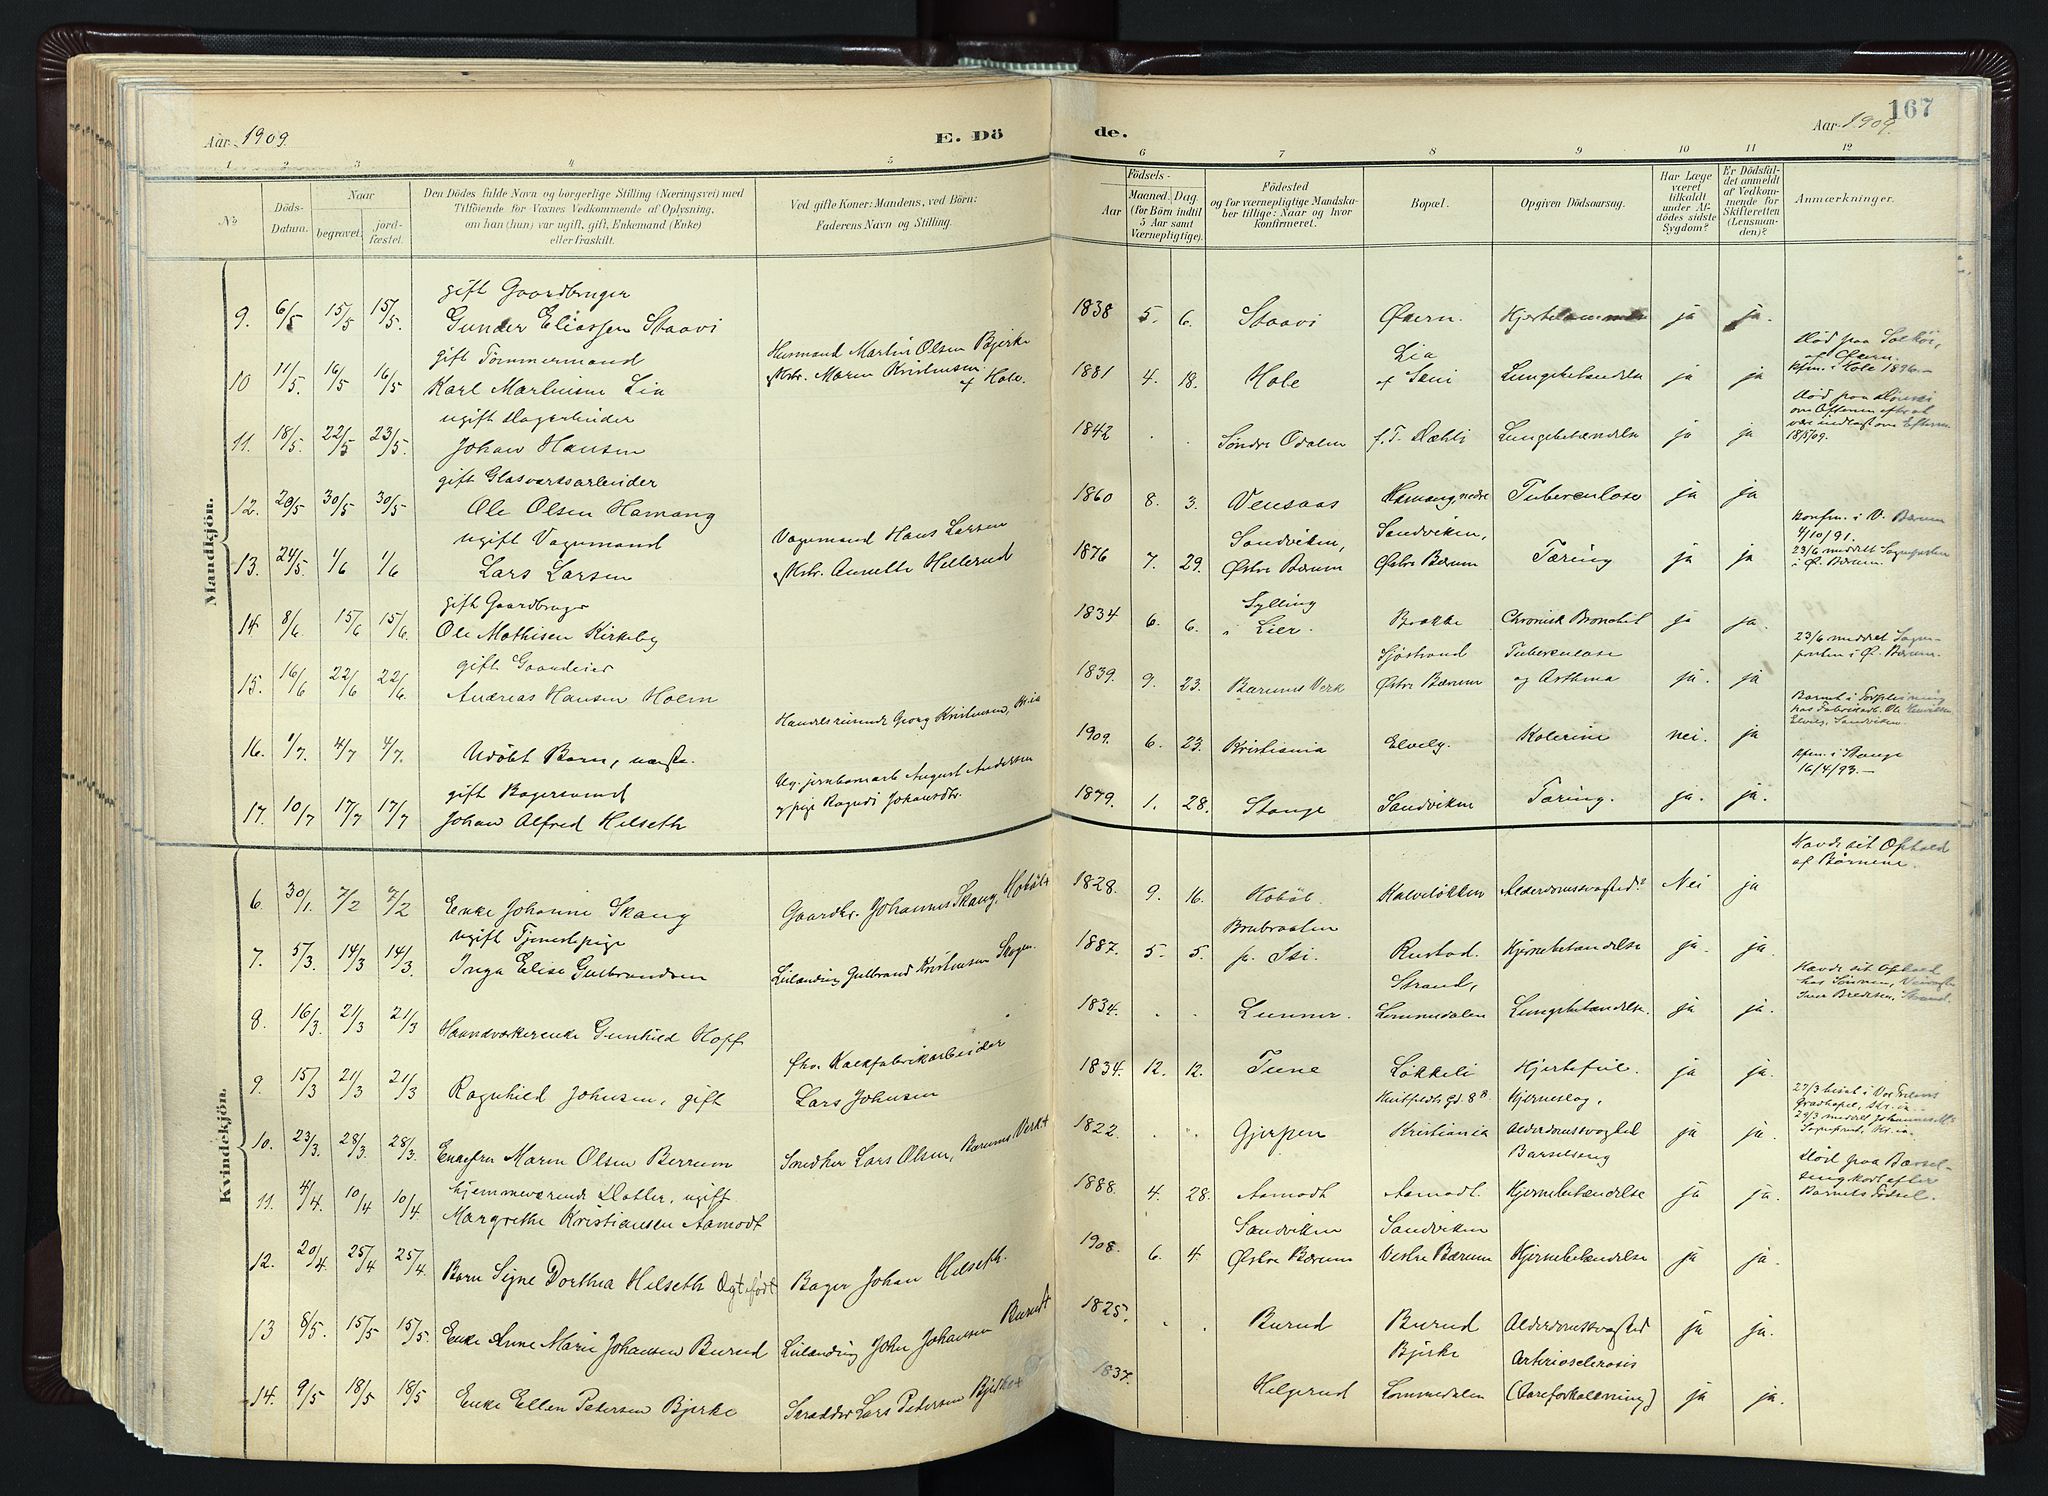 Aar 1909
E. Dö
de.
Aar 1909.
167
1 2 3 4 5 6 7 8 9 10 11 12
No
Döds-
Datum.
Naar
begravet.
jord-
fæstet.
Den Dödes fulde Navn og borgerlige Stilling (Næringsvei) med
Tilföiende for Voxnes Vedkommende af Oplysning,
om han (hun) var ugift, gift, Enkemand (Enke)
eller fraskilt.
Ved gifte Koner: Mandens, ved Börn:
Faderens Navn og Stilling.
Födsels-
Aar
Maaned. Dag.
(for Börn indtil
5 Aar samt
Værnepligtige).
Födested
og for værnepligtige Mandska-
ber tillige: Naar og hvor
konfirmeret.
Bopæl.
Opgiven Dödsaarsag.
Har Læge
været
tilkaldt
under Af-
dödes sidste
Sygdom?
Er Dödsfal-
det anmeldt
af Vedkom-
mende for
Skifteretten
(Lensman-
den)?
Anmærkninger.
Mandkjön.
gift Gaardbruger
9. 6/5 15/5 15/5. Gunder Eliassen Staavi 1838 5. 6. Staavi Øvern. ja ja.
gift Tømmermand
Husmand Martin Olsen Bjerke
Lia
Død paa
10 11/5. 16/5 16/5 Karl Martinsen Lia Mor. Maren Kristiansen af Hole. 1881 4. 18. Hole Lungebetændelse ja ja
kfm. i Hole 1896.
ugift Dagarbeider
11. 18/5. 22/5 23/5. Johan Hansen 1842 . . Søndre Odalen f. T. Dæhli Lungebetændelse ja ja
18/5/09.
gift Glasværksarbeider
12. 20/5 30/5 30/5 Ole Olsen Hamang 1860 8. 3. Vensaas Hamang nedre Tuberculose ja ja
ugift Vognmand
Vognmand Hans Larsen
Sandviken, Sandviken,
Konfm. i V. Bærum
4/10/91.
13. 24/5. 1/6 1/6 Lars Larsen Mor. Annette Hellerud 1876 7. 29. Østre Bærum Østre Bærum Tæring ja ja
23/6 meddelt Sogneprsten
i Ø. Bærum.
gift Gaardbruger
Sylling
14. 8/6 15/6 15/6. Ole Mathisen Kirkeby 1834 6. 6. i Lier. Brakke Chronisk Bronchit ja ja.
gift Gaardeier
Sjøstrand Tuberculose
23/6 meddelt Sogne-
prsten i Ø. Bærum.
15. 16/6 22/6 22/6. Andreas Hansen Holm 1839. 9. 23. Bærums Verk Østre Bærum og Asthma ja. ja
Handelsreisende Georg Kristiansen, Kr.ia
16. 1/7. 4/7 4/7. Udöbt Barn, uægte. 1909. 6. 23. Kristiania Elvely. Kolerine nei. ja
Elvely, Sandviken.
gift Bagersvend
Ug. jernbanearb August Andersen
kfm. i Stange
16/4/93.
17. 10/7 17/7 17/7 Johan Alfred Hilseth og pige Ragndi Johansdtr. 1879. 1. 28. Stange Sandviken Tæring. ja. ja.
Kvindekjön.
6. 30/1. 7/2 7/2 Enke Johanne Skaug Gaardbr. Johannes Skaug, Hobøl+ 1828. 9. 16. Hobøl. Kalveløkken Alderdomssvaghed? Nei ja
Havde sit Ophold
af Børnene.
ugift Tjenestepige
Brubraaten
7. 5/3. 14/3 14/3. Inga Elise Gulbrandsen Leilænding Gulbrand Kristiansen Skogen. 1887. 5. 5. p. Isi Rustad. Hjernebetændelse ja. ja.
Strand,
Havde sit Ophold
8. 16/3. 21/3 21/3 Haandværkerenke Gunhild Hoff 1834. . . Lunner. Lommedalen Lungebetændelse. ja ja.
hos Sönnen,
Iver Bredesen, Strand.
fhv. Kalkfabrikarbeider
9. 15/3 21/3 21/3 Ragnhild Johnsen, gift Lars Johnsen 1834. 12. 12. Tune Løkkeli Hjertefeil. ja ja.
Huitfeldts Gd. 8B Hjerneslag,
10. 23/3. 28/3. 28/3. Enkefru Maren Olsen Berrum Snedker Lars Olsen, Bærums Verk+ 1822. . . Gjerpen Kristiania Alderdomssvaghed ja ja.
27/3 bisat i Vor Frelsers
Gravkapel, Kr.ia.
hjemmeværende Datter, ugift
Barselseng
Död paa Barsel-
seng kort efter
Barnets Födsel.
11. 4/4. 10/4 10/4. Margrethe Kristiansen Aamodt 1888. 4. 28. Aamodt Aamodt. Hjernebetændelse ja ja.
Sandviken Sandviken
12. 20/4. 25/4 25/4. Barn Signe Dorthea Hilseth Ægtefødt Bager Johan Hilseth. 1908. 6. 4. Østre Bærum Vestre Bærum Hjernebetændelse ja ja.
13 8/5. 15/5 15/5. Enke Anne Marie Johansen Burud Leilænding John Johansen Burud+ 1825. . . Burud Burud Alderdomssvaghed ja ja.
Bjerke Arteriosclerosis
14. 9/5 18/5 18/5 Enke Ellen Pedersen Bjerke Skrædder Lars Pedersen Bjerke+ 1837. Helgerud Lommedalen (Aareforkalkning) ja ja.